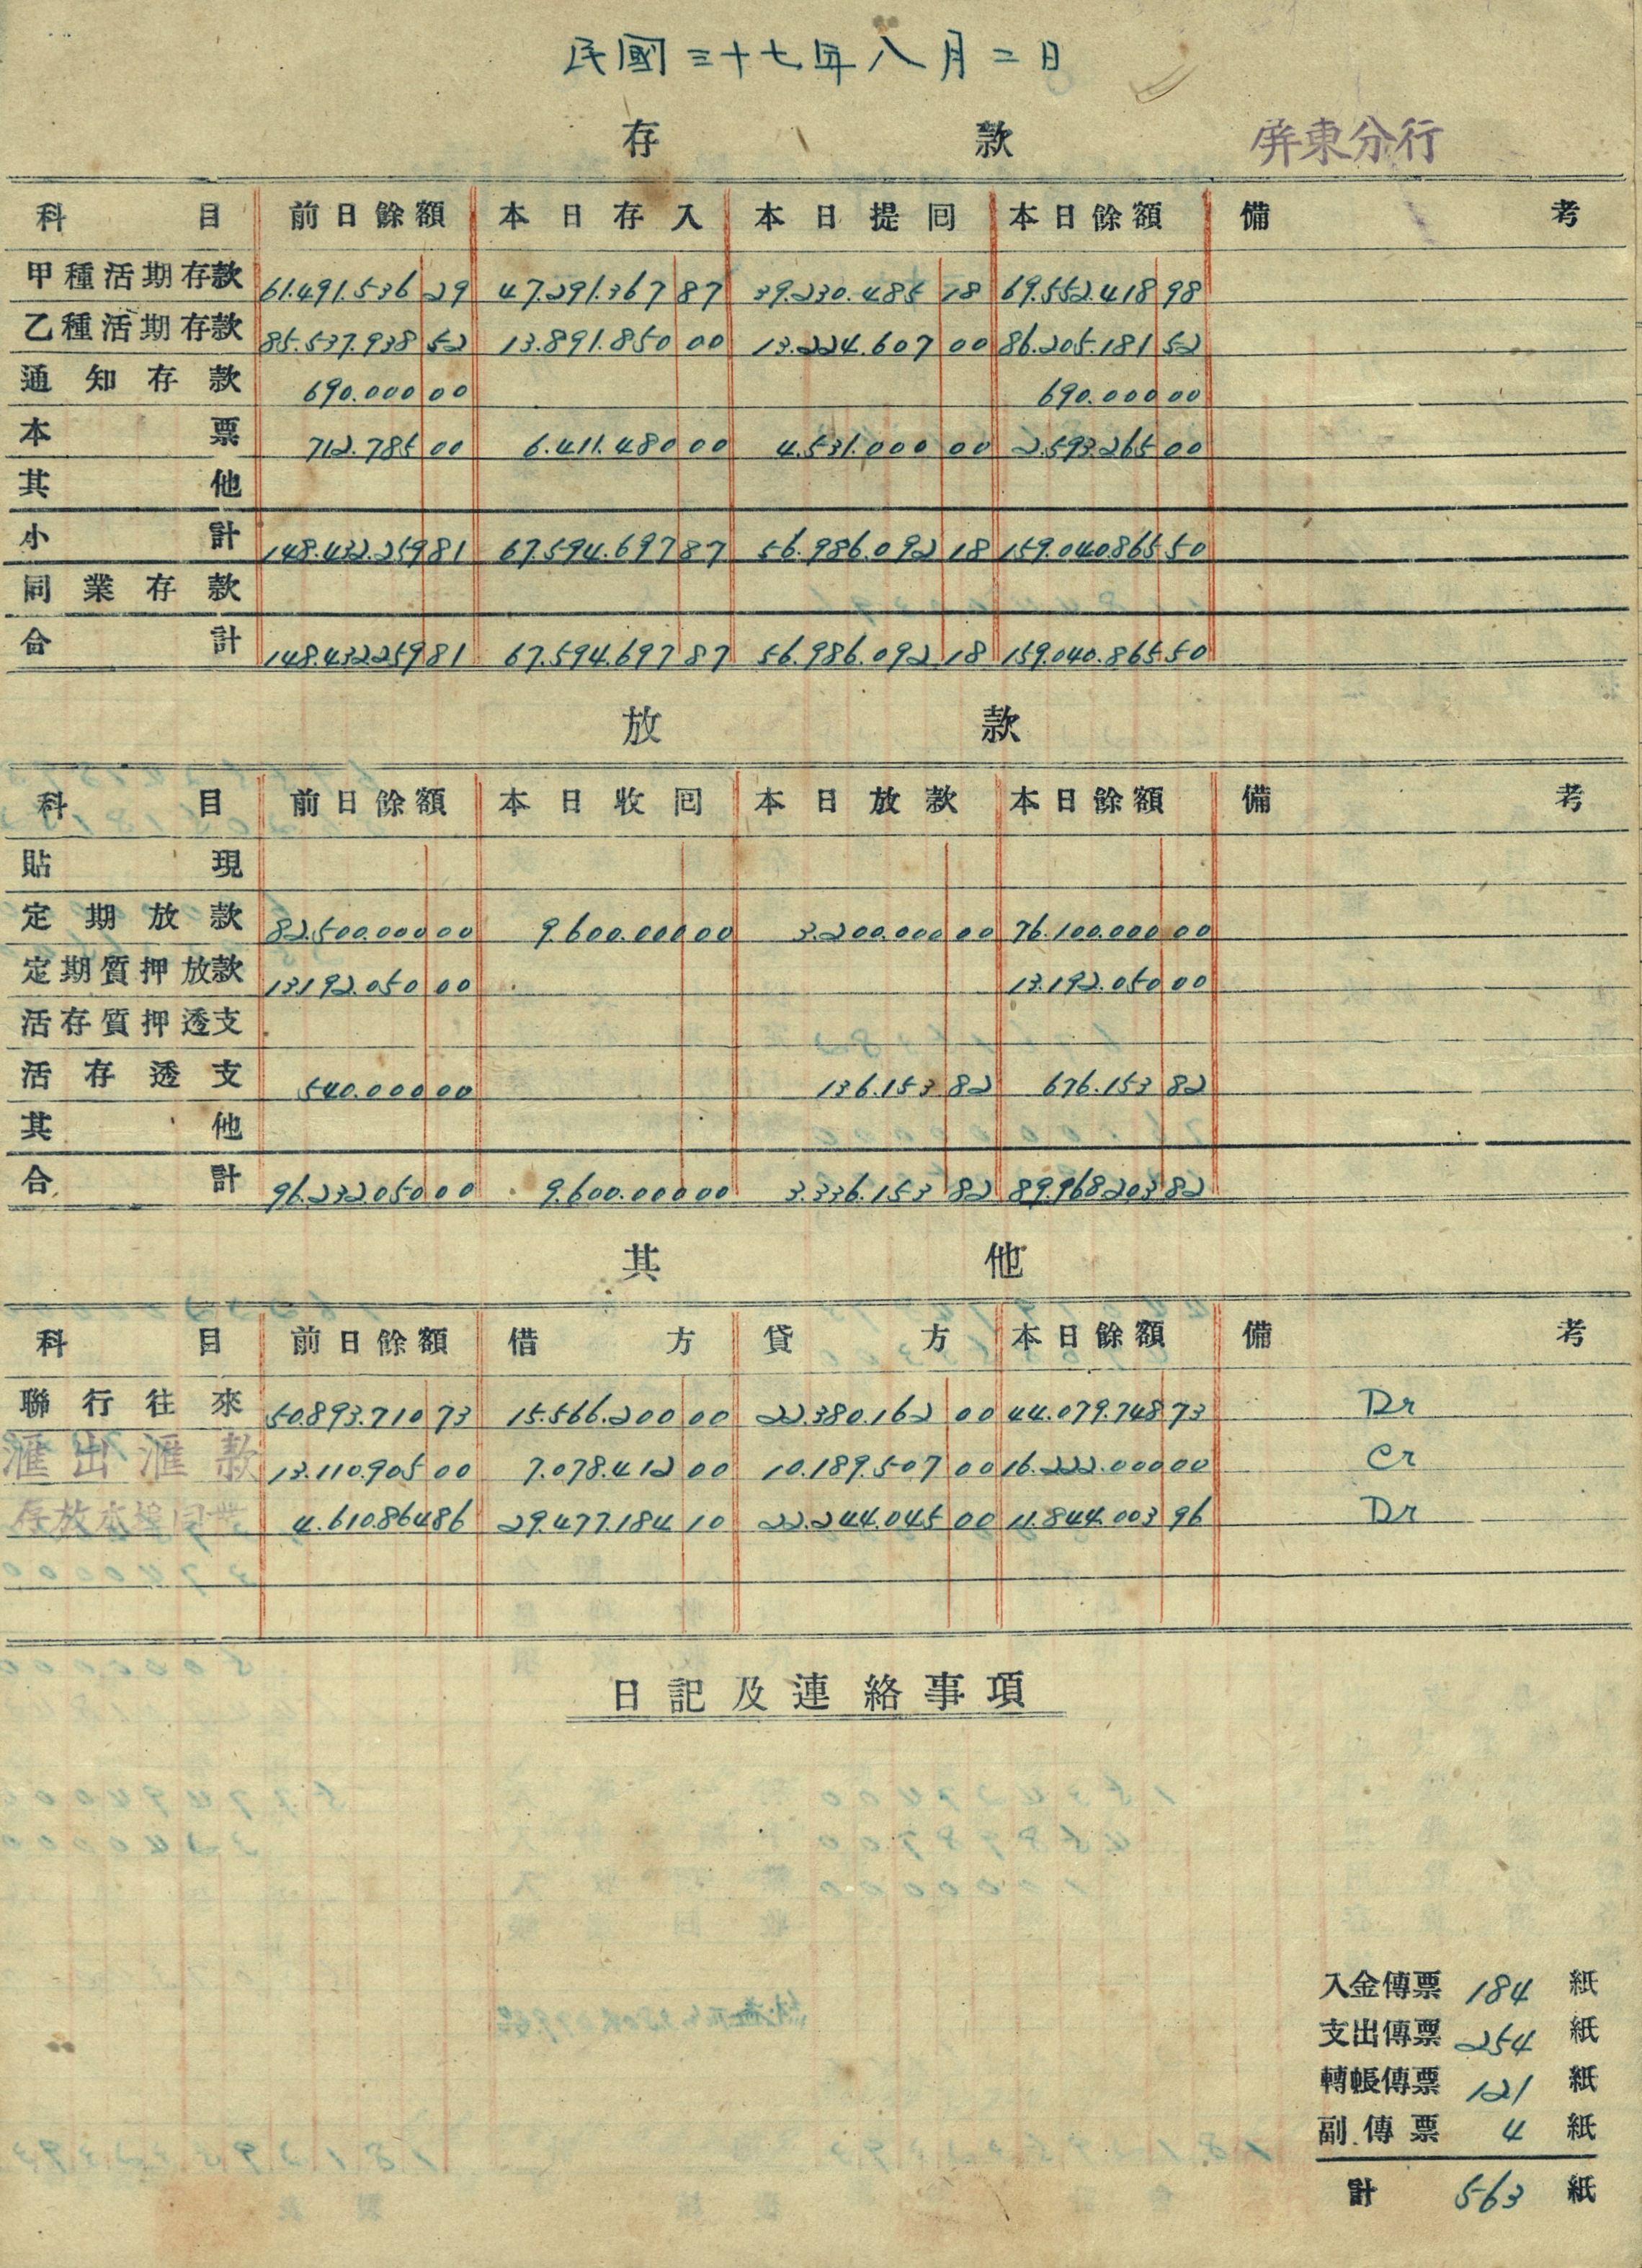 民國三十七年八月二日
存款 屏東分行
科目 前日餘額 本日存入 本日提囘 本日餘額 備考
甲種活期存款 61.491.536 29 47.291.367 87 39.230.485 18 69.552.418 98
乙種活期存款 85.537.938 52 13.891.850 00 13.224.607 00 86.205.181 52
通知存款 690.000 00 690.000 00
本票 712.785 00 6.411.480 00 4.531.000 00 2.593.265 00
其他
小計 148.432.259 81 67.594.697 87 56.986.092 18 159.040.865 50
同業存款
合計 148.432.259 81 67.594.697 87 56.986.092 18 159.040.865 50
放款
科目 前日餘額 本日收囘 本日放款 本日餘額 備考
貼現
定期放款 82.500.000 00 9.600.000 00 3.200.000 00 76.100.000 00
定期質押放款 13.192.050 00 13.192.050 00
活存質押透支
活存透支 540.000 00 136.153 82 676.153 82
其他
合計 96.232.050 00 9.600.000 00 3.336.153 82 89.968.203 82
其他
科目 前日餘額 借方 貸方 本日餘額 備考
聯行往來 50.893.710 73 15.566.200 00 22.380.162 00 44.079.748 73 Dr
滙出滙款 13.110.905 00 7.078.412 00 10.189.507 00 16.222.000 00 Cr
存放本埠同業 4.610.864 86 29.477.184 10 22.244.045 00 11.844.003 96 Dr
日記及連絡事項
入金傳票 184 紙
支出傳票 254 紙
轉帳傳票 121 紙
副傳票 4 紙
計 563 紙